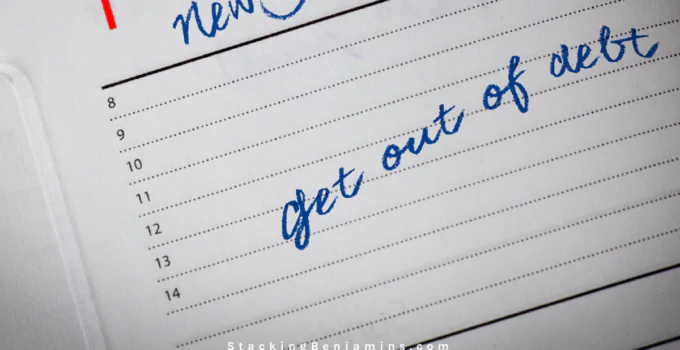 new
8
9
10
11
12
13
14
get out of debt
StackingBenjamins.com